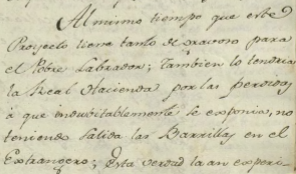 Al mismo tiempo que este
Proyecto tiene tanto de gravoso para
el Pobre Labrador; Tambien lo tendria
la Real Hacienda por las perdidas
à que indubitablemente se exponia, no
teniendo Salida las Barrillas en el
Extrangero; Esta verdad la an experi-